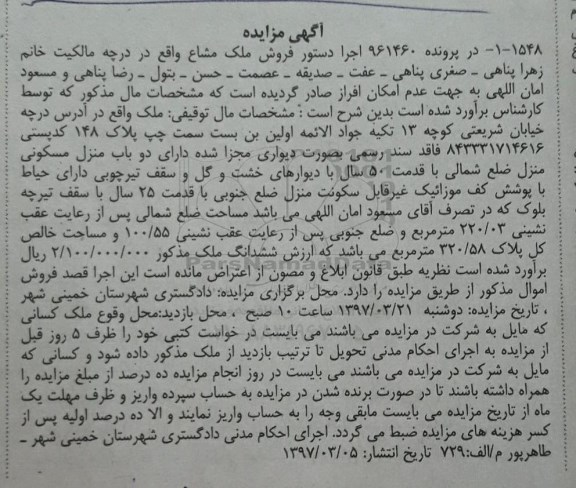 آگهی مزایده
۱-۱۵۴۸- در پرونده ۹۶۱۴۶۰ اجرا دستور فروش ملک مشاع واقع در درچه مالکیت خانم
زهرا پناهی ـ صغری پناهی ـ عفت ـ صدیقه ـ عصمت ـ حسن ـ بتول ـ رضا پناهی و مسعود
امان اللهی به جهت عدم امکان افراز صادر گردیده است که مشخصات مال مذکور که توسط
کارشناس برآورد شده است بدین شرح است : مشخصات مال توقیفی: ملک واقع در آدرس درچه
خیابان شریعتی کوچه ۱۳ تکیه جواد الائمه اولین بن بست سمت چپ پلاک ۱۴۸ کدپستی
۸۴۳۳۱۷۱۴۶۱۶ فاقد سند رسمی بصورت دیواری مجزا شده دارای دو باب منزل مسکونی
منزل ضلع شمالی با قدمت ۵۰ سال با دیوارهای خشت و گل و سقف تیرچوبی دارای حیاط
با پوشش کف موزائیک غیرقابل سکونت منزل ضلع جنوبی با قدمت ۲۵ سال با سقف تیرچه
بلوک که در تصرف آقای مسعود امان اللهی می باشد مساحت ضلع شمالی پس از رعایت عقب
نشینی ۲۲۰/۰۳ مترمربع و ضلع جنوبی پس از رعایت عقب نشینی ۱۰۰/۵۵ و مساحت خالص
کل پلاک ۳۲۰/۵۸ مترمربع می باشد که ارزش ششدانگ ملک مذکور ۲/۱۰۰/۰۰۰/۰۰۰ ریال
برآورد شده است نظریه طبق قانون ابلاغ و مصون از اعتراض مانده است این اجرا قصد فروش
اموال مذکور از طریق مزایده را دارد. محل برگزاری مزایده: دادگستری شهرستان خمینی شهر
، تاریخ مزایده: دوشنبه ۱۳۹۷/۰۳/۲۱ ساعت ۱۰ صبح ، محل بازدید:محل وقوع ملک کسانی
که مایل به شرکت در مزایده می باشند می بایست در خواست کتبی خود را ظرف ۵ روز قبل
از مزایده به اجرای احکام مدنی تحویل تا ترتیب بازدید از ملک مذکور داده شود و کسانی که
مایل به شرکت در مزایده می باشند می بایست در روز انجام مزایده ده درصد از مبلغ مزایده را
همراه داشته باشند تا در صورت برنده شدن در مزایده به حساب سپرده واریز و ظرف مهلت یک
ماه از تاریخ مزایده می بایست مابقی وجه را به حساب واریز نمایند و الا ده درصد اولیه پس از
کسر هزینه های مزایده ضبط می گردد. اجرای احکام مدنی دادگستری شهرستان خمینی شهر ـ
طاهرپور م/الف:۷۲۹ تاریخ انتشار: ۱۳۹۷/۰۳/۰۵